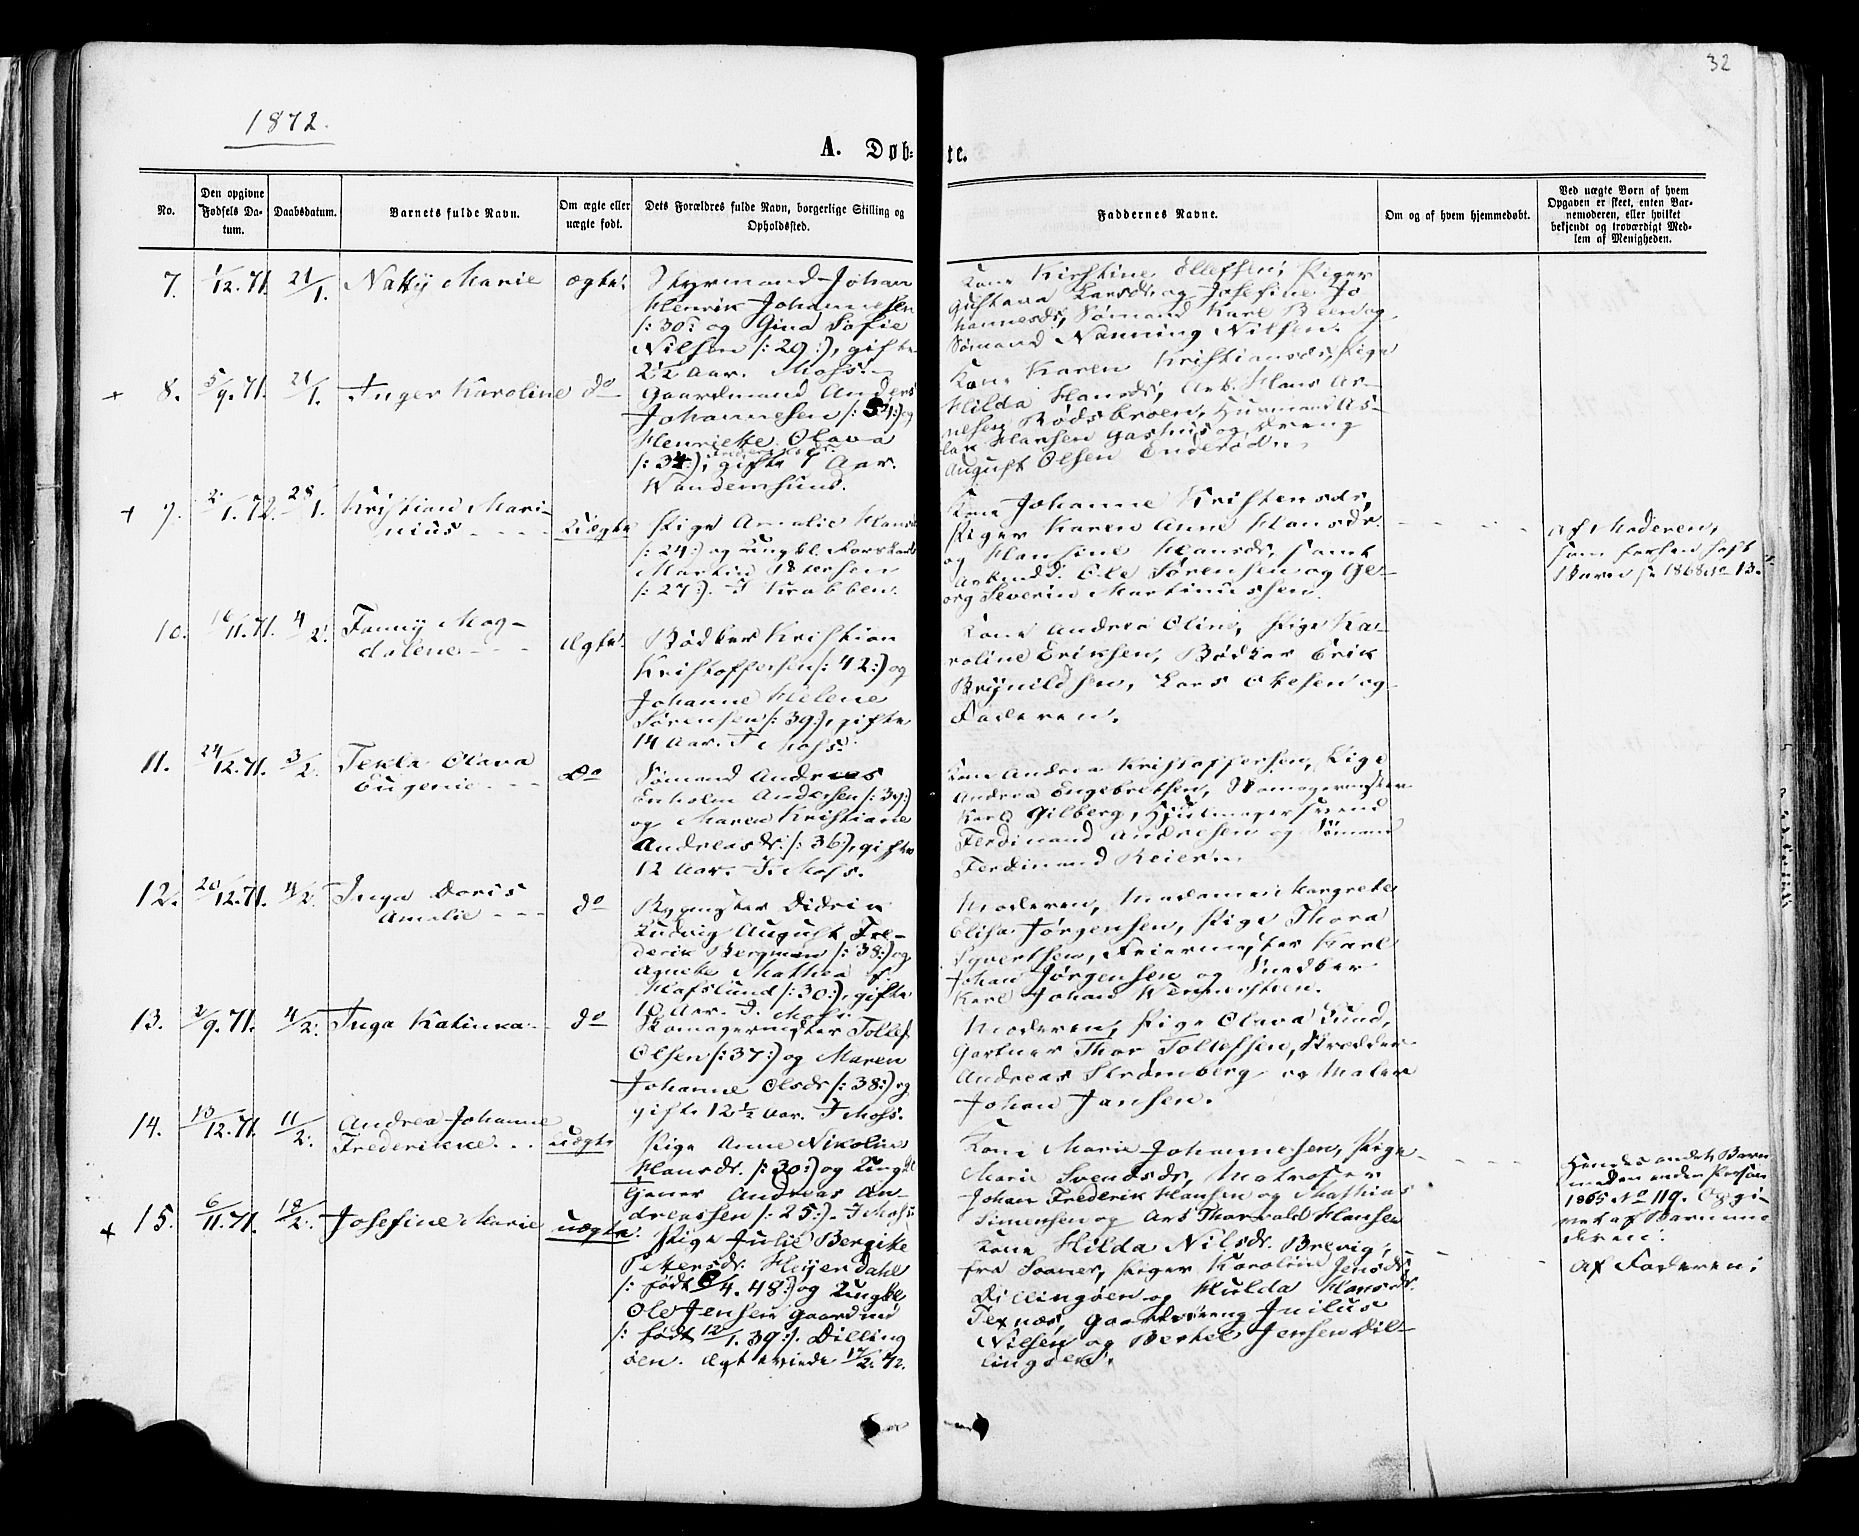 32
1872.
A. Døb-
te.
No.
Den opgivne Fødsels Da-
tum.
Daabsdatum.
Barnets fulde Navn.
Om ægte eller
uægte født.
Dets Forældres fulde Navn, borgerlige Stilling og
Opholdssted.
Faddernes Navne.
Om og af hvem hjemmedøbt.
Ved uægte Børn af hvem
Opgaven er skeet, enten Bar-
nemoderen, eller hvilket
bekjendt og troværdigt Med-
lem af Menigheden.
7.
1/12.71.
21/1.
Marie
ægte.
Styrmand Johan
Henrik Johannesen
/:30:/ og Gina Sofie
Nilsen /:29:/, gifte
2½ Aar. Moss.
Kone Kirstine Ellefsen, Piger
Gustava Larsdr og Josefine Jo
hannesdr, Sømand Karl Beien og
Sømand Nanning Nilsen.
+ 8.
5/9.71.
21/1.
Inger Karoline
do
Gaardmand Anders
Johannesen og
Henriette Olava
/:34:/, gifte 1 Aar.
Vandemsund.
Kone Karen Kristiansdr, Pige
Hilda Hansdr, Arb. Hans As-
lesen Rødsbroen, Husmand As-
lak Hansen Gashus og Dreng
August Olsen
+ 9.
2/1.72.
28/1.
Kristian Mari-
nius
uægte
Pige Amalie Hansdr
/:24:/ og Ungkl.
Martin Petersen
/:27:/. I Krabben.
Kone Johanne Kristensdr,
Piger Karen Anne Hansdr
og Hansine Hansdr, samt
Arbmd. Ole Sørensen og Ge-
org Severin Martinussen.
Af Moderen,
som forhen havt
Barn 1868 No 13.
10.
16/11.71.
4/2.
Fanny Mag-
dalene
ægte.
Bødker Kristian
Kristoffersen /:42:/ og
Johanne Helene
Sørensen /:39:/, gifte
14 Aar. I Moss.
Kone Andrea Oline, Pige Ka-
roline Eriksen, Bødker Erik
Brynildsen, Lars Olesen og
Faderen.
11.
24/12.71.
3/2.
Tekla Olava
Eugenie
Do
Sømand Andreas
Enholm Andersen /:39:/
og Maren Kristiane
Andreasdr. /:36:/, gifte
12 Aar. I Moss.
Kone Andrea Kristoffersen, Pige
Andrea Engebretsen, Skomagermester
Karl Gilberg, Hjulmagersvend
Ferdinand Andresen og Sømand
Ferdinand Reier
12.
20/12.71.
4/2.
Inga Doris
Amalie
do
Bygmester Didrik
Ludvig August Fre-
derik Bergman /:38:/ og
Agnete Mathea f.
Hafslund /:30:/, gifte
10 Aar. I Moss.
Moderen, Madame Margrete
Elisa Jørgensen, Pige Thora
Syvertsen, Feiermester Karl
Johan Jørgensen og Snedker
Karl Johan Wennersten.
13.
2/9.71.
4/2.
Inga Katinka
do
Skomagermester Tollef
Olsen /:37:/ og Maren
Johanne Olsdr /:38:/
gifte 12½ Aar. I Moss.
Moderen, Pige Olava Lund,
Gartner Thor Tollefsen, Skredder
Andreas Strømberg og Maler
Johan Jansen.
14.
13/12.71.
11/2.
Andrea Johanne
Frederikke
uægte
Pige Anne Nikoline
Hansdr. /:30:/ og Ungkl
Andreas An-
dreassen /:25:/. I Moss
Kone Marie Johannesen, Pige
Marie Svendsdr, Matroser
Johan Frederik Hansen og Mathias
Simensen og Arb Thorvald Hansen
Hendes andet Barn
med en anden Person
1865 No 119. Opgi-
vet af Barnemo
deren.
+ 15.
6/11.71.
18/2.
Josefine Marie
uægte.
Pige Julie Bergitte
Petersdr. Heyerdahl
/: født /4.48:/ og Ungkl
Ole Jensen Gaardmd
/: født 12/1.39:/. Dilling
øen. Ægteviede 17/2.72.
Kone Hilda Nilsdr. Brevig,
fra Sooner, Piger Karoline Jensdr
Dillingøen og Hulda Hansdr.
Texnæs, Gaardsdreng Julius
Nilsen og Bertel Jensen Dil-
lingøen.
Af Faderen.